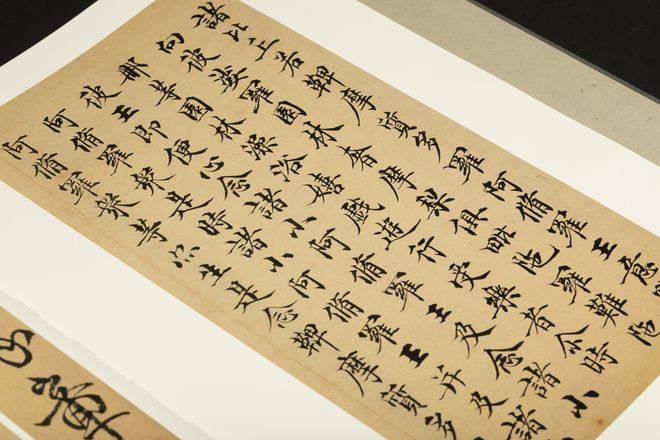 諸比丘若鞞摩質多羅阿脩羅王意
向彼娑羅園林奢摩梨俱毗陁羅難陁
那等園林澡浴嬉戲遊行受樂者尒時
彼王即便心念諸小阿脩羅王及念諸小
阿脩羅衆是時諸小阿脩羅王并及諸
阿脩羅衆等亦生是念鞞摩質多